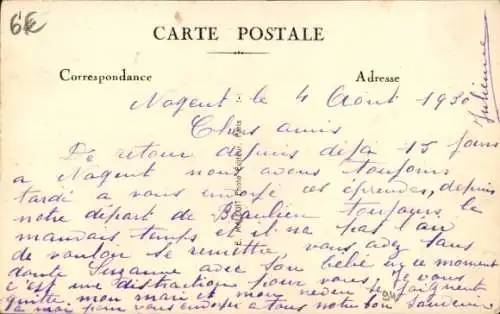 6€
CARTE POSTALE
Correspondance
Adresse
Nogent le 4 Août 1930
Chers amis
De retour depuis déja 15 jours
a Nogent nous avons toujours
tardé a vous envoyé ces depuis
notre départ de Beaulieu toujours le
mauvais temps et il n'a pas l'air
de vouloir se remettre, vous avez sans
doute Suzanne avec son bébé en ce moment
c'est une distraction pour vous. Je vous
quitte, mon mari et mon se joignent
a moi pour vous envoyé a tous notre bon souvenir
Julienne
Paris